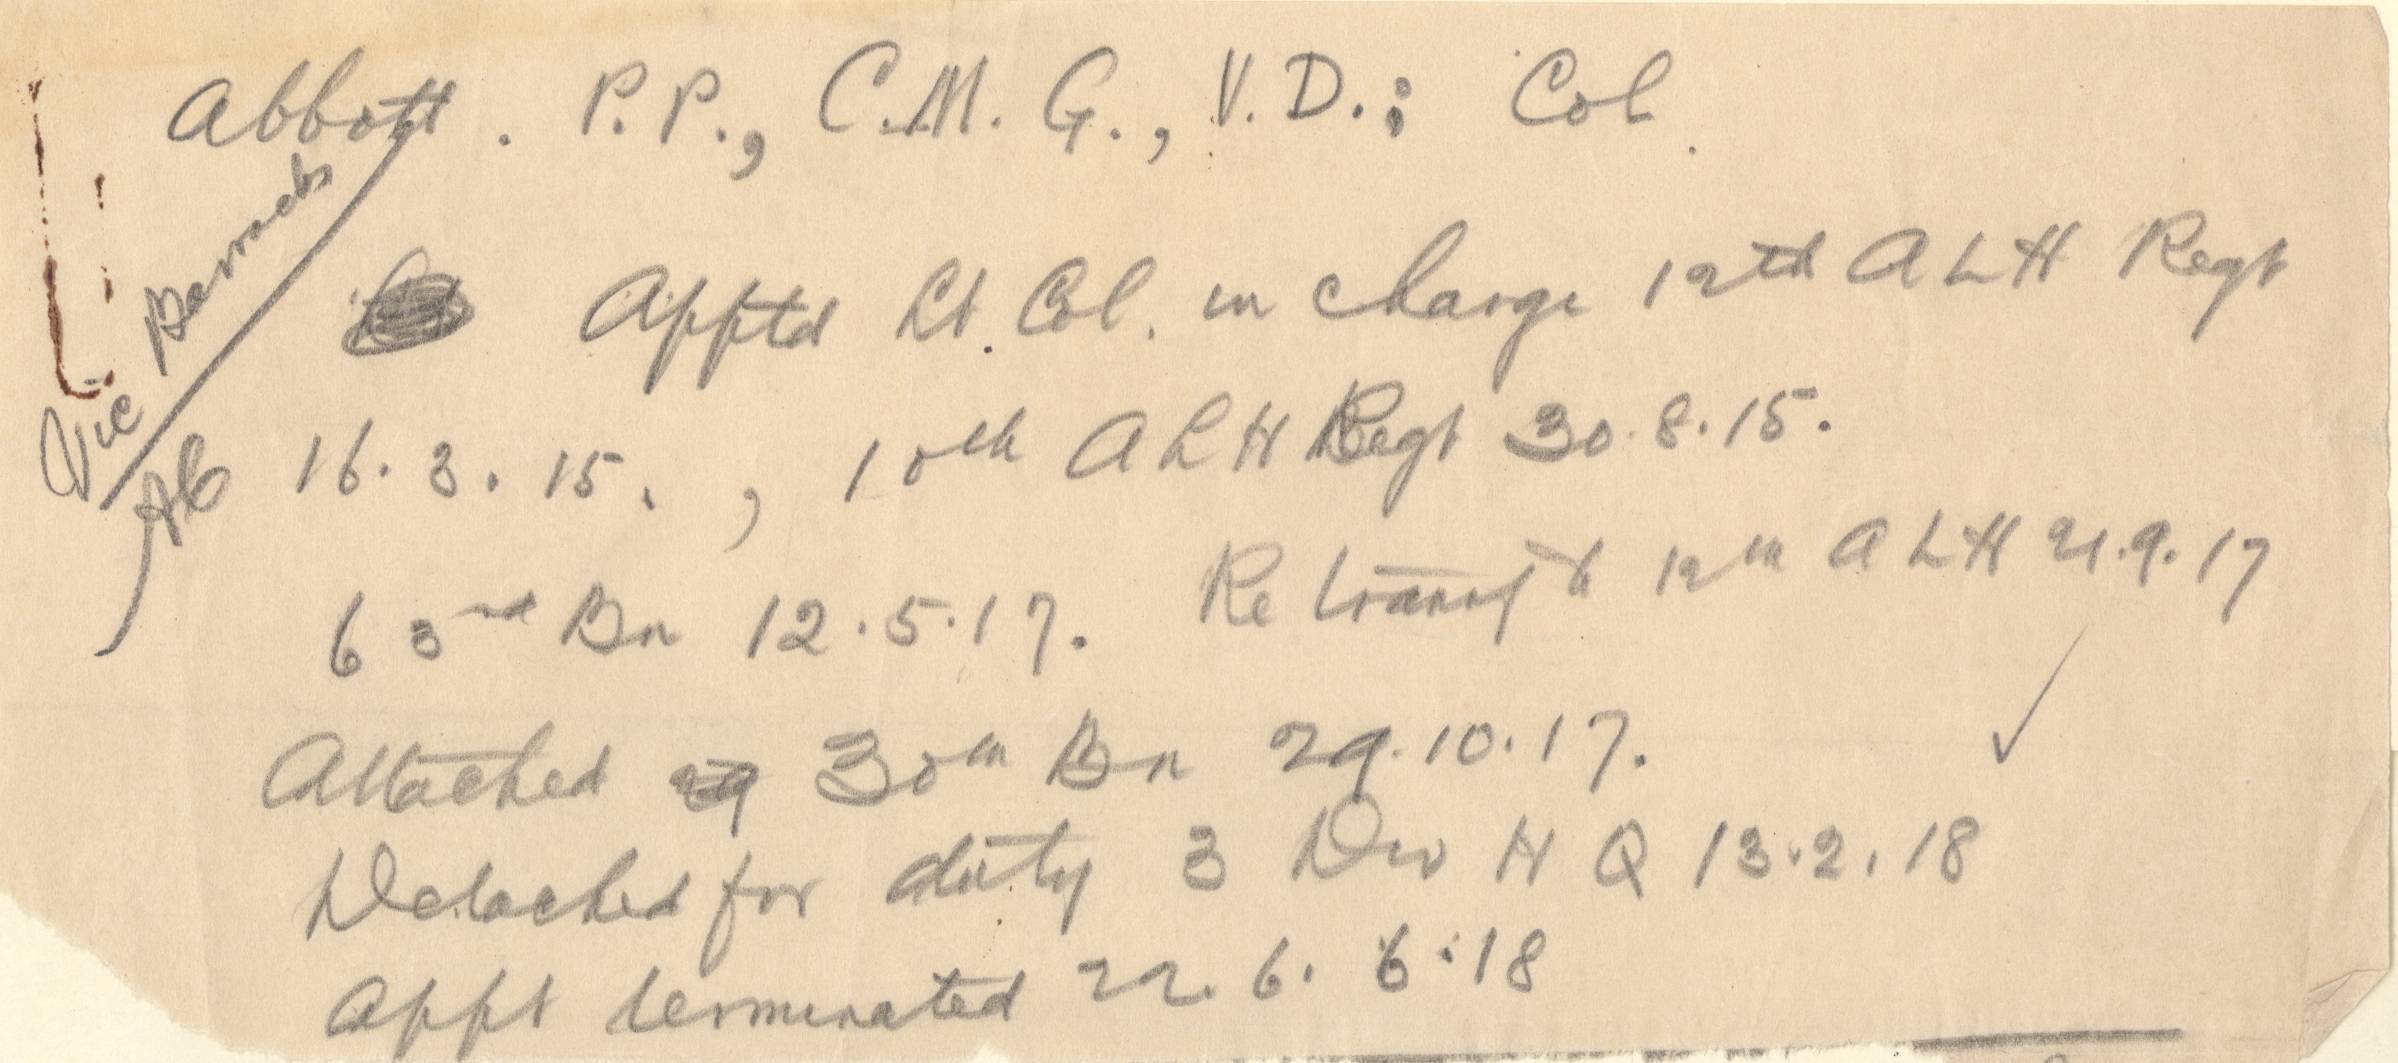 Abbott. P.P., C.M.G., V.D.; Col.
Vic Barracks
Apptd Lt. Col. in charge 12th A L H Regt
16.3.15., 10th A L H Regt 30.8.15.
63rd Bn 12.5.17. Re transf to 12th A L H 21.9.17
Attached 30th Bn 29.10.17.
Detached for duty 3 Div H Q 13.2.18
Appt terminated 22.6.18